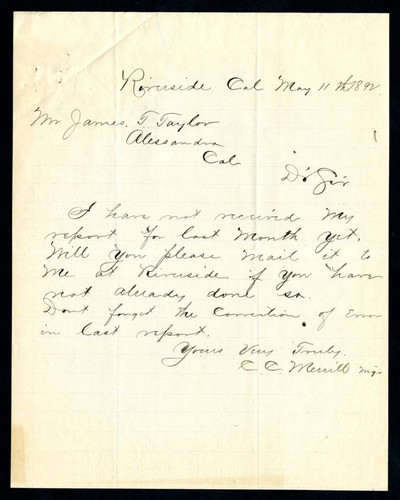 Riverside Cal May 11th 1892
Mr James. T. Taylor
Alessandro
Cal
Dr Sir
I have not received My
report for last Month yet.
Will you please Mail it to
Me at Riverside if you have
not already done so.
Dont forget the Correction of Error
in last report.
Yours Very Truly.
C. C. Merrill